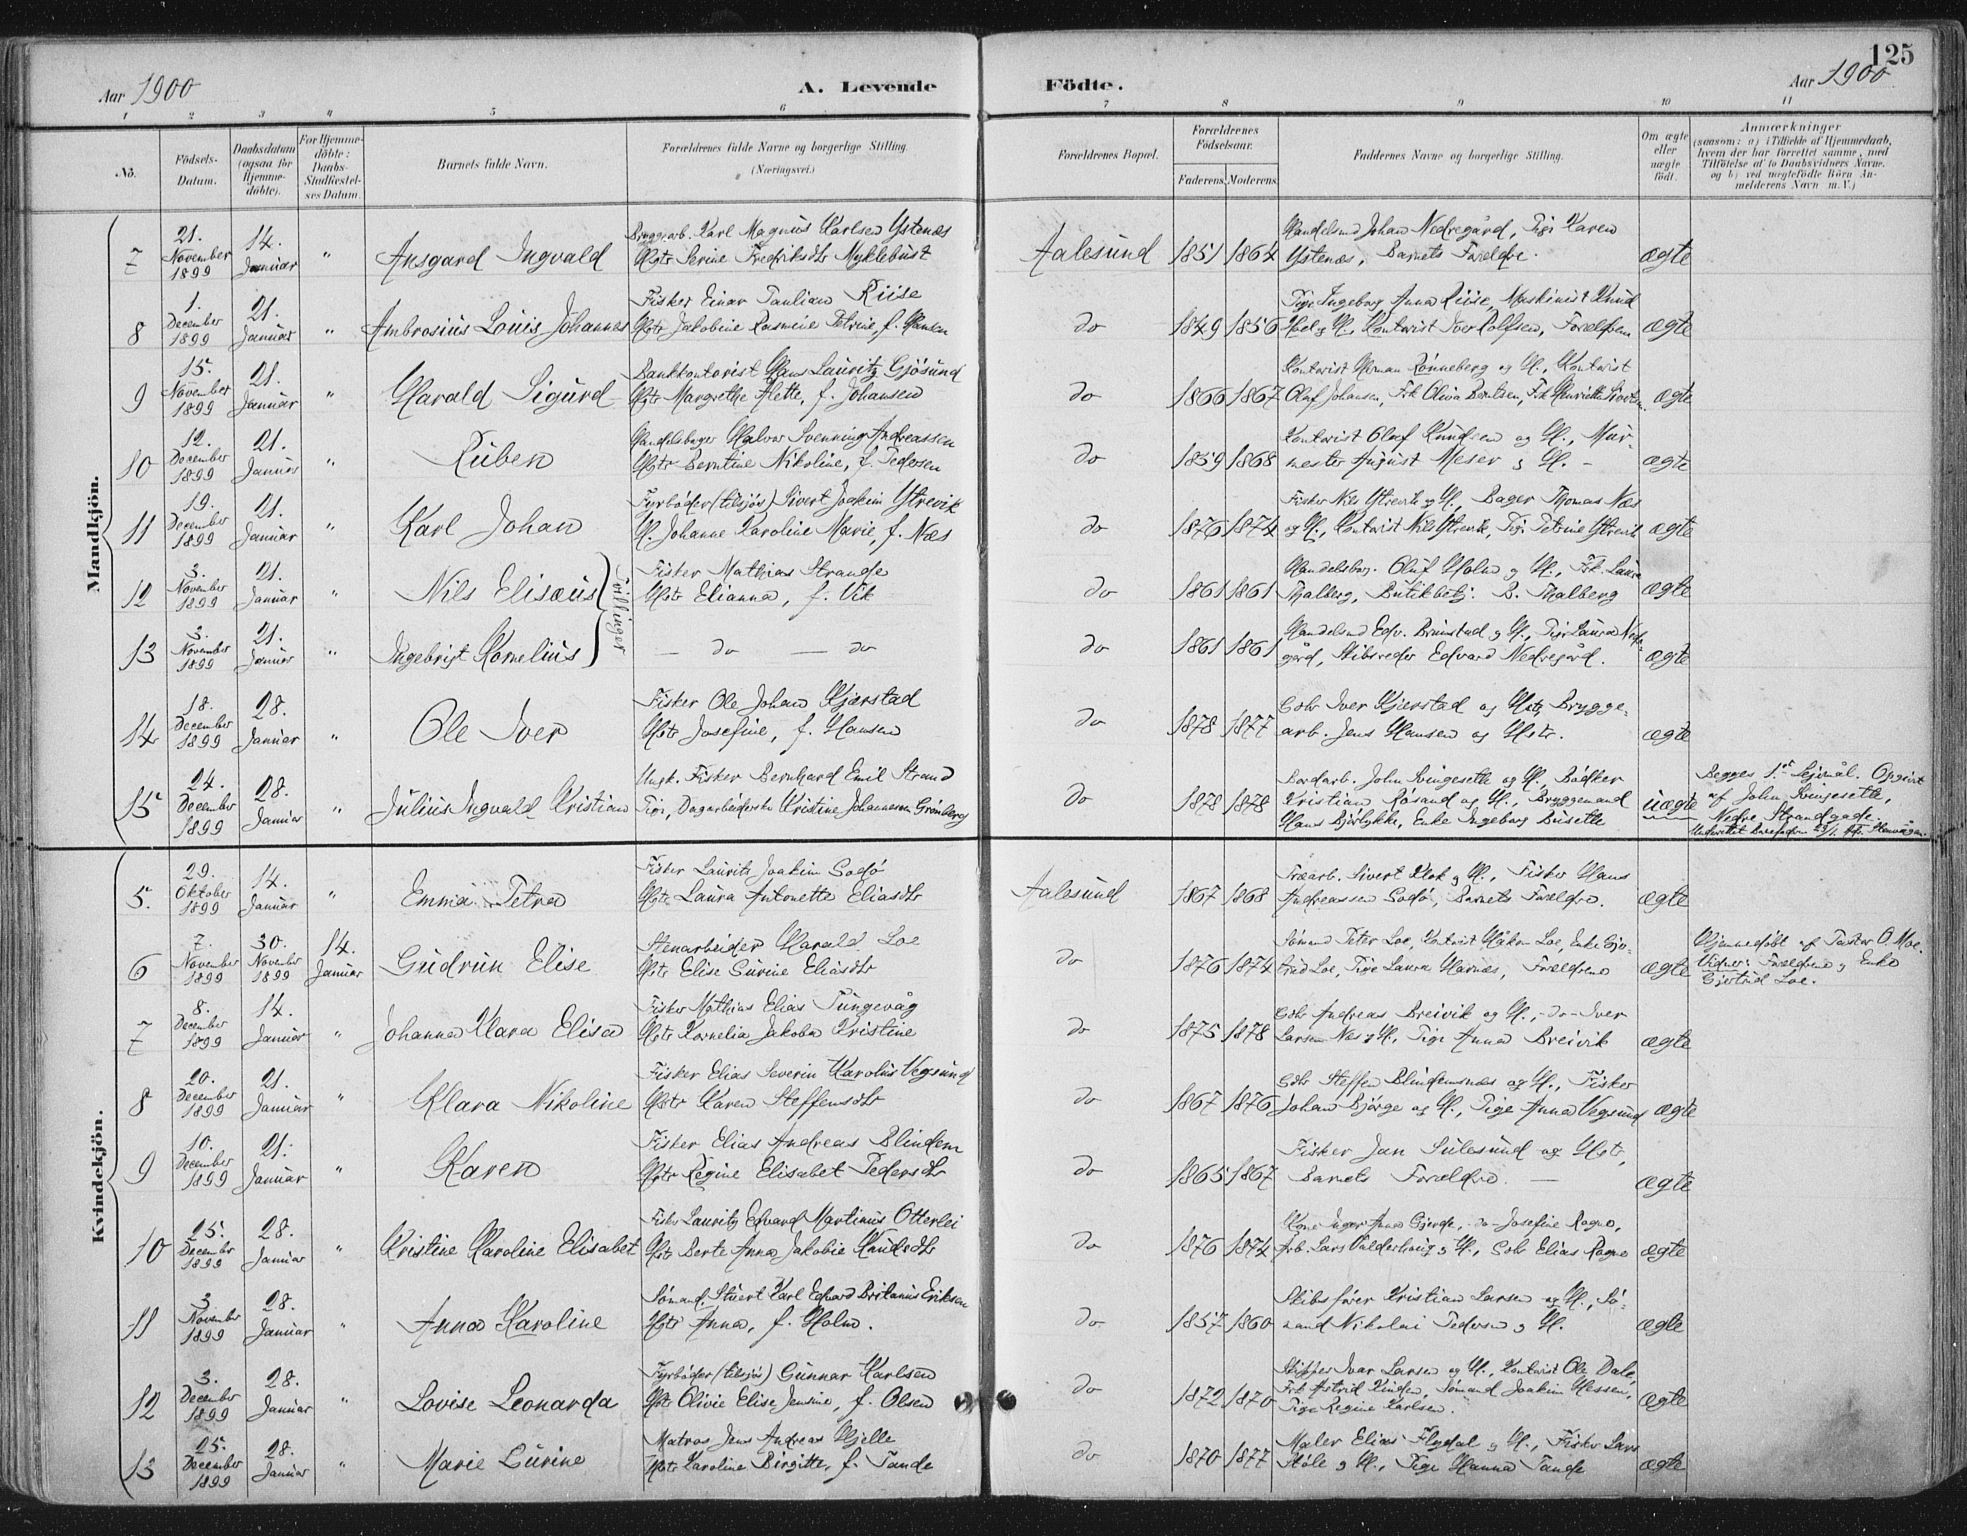 125
Aar 1900
A. Levende Födte.
Aar 1900
1 2 3 4 5 6 7 8 9 10 11
No.
Födsels-Datum.
Daabsdatum (ogsaa for Hjemme-döbte).
For Hjemme-döbte: Daabs-Stadfæstel-ses Datum.
Barnets fulde Navn.
Forældrenes fulde Navne og borgerlige Stilling. (Næringsvei.)
Forældrenes Bopæl.
Forældrenes Födselsaar.
Faderens. Moderens.
Faddernes Navne og borgerlige Stilling.
Om ægte eller uægte födt.
Anmærkninger
(saasom: a) i Tilfælde af Hjemmedaab, hvem der har forrettet samme, med Tilföielse af to Daabsvidners Navne. og b) ved uægtefödte Börn An-melderens Navn m. V.)
Mandkjön.
7 21. November 1899 14. Januar " Ansgard Ingvald
Bryggearb. Karl Magnus Karlsen Ystenæs
Hstr Serine Fredriksdtr Myklebust
Aalesund 1851 1864
Handelsmd Johan Nedregård, Pige Karen
Ystenæs, Barnets Forældre.
ægte
8 1. December 1899 21. Januar " Ambrosius Louis Johannes
Fisker Einar Paulian Riise
Hstr Jakobine Rasmine Petrine, f. Hansen
do 1849 1856
Pige Ingeborg Anna Riise, Maskinist Knud
og H., Kontorist Iver Rolfsen, Forældrene
ægte
9 15. November 1899 21. Januar " Harald Sigurd
Bankkontorist Hans Lauritz Gjøsund
Hstr Margrethe Alette, f. Johansen
do 1866 1867
Kontorist Herman Rønneberg og H., Kontorist
Olaf Johansen, Frk Oliva Berntsen, Frk Henriette
ægte
10 12. December 1899 21. Januar " Ruben
Handelsbager Halvor Svenning Andreassen
Hstr Berntine Nikoline, f. Pedersen
do 1859 1868
Kontorist Olaf Knudsen og H., Mur-
mester August Meser og H. -
ægte
11 19. December 1899 21. Januar " Karl Johan
Fyrbøder (tilsjøs) Sivert Joakim Ytrevik
H. Johanne Karoline Marie, f. Næs
do 1876 1874
Fisker Nils Ytrevik og H., Bager Thomas Næs
og H., Kontorist Nils Ytrevik, Pige Petrine Ytrevik
ægte
12 3. November 1899 21. Januar " Nils Elisæus
Tvillinger
Fisker Mathias Strande
Hstr Elianna, f. Vik
do 1861 1861
Handelsbog. Oluf Holm og H., Frk. Laura
Thalberg, Butikbetj. B. Thalberg
ægte
13 3. November 1899 21. Januar " Ingebrigt Kornelius
— do — do
do 1861 1861
Handelsmd Edv. Brunstad og H., Pige Laura Nedre-
gård, Skibsreder Edvard Nedregård.
ægte
14 18. December 1899 28. Januar " Ole Iver
Fisker Ole Johan Kjerstad
Hstr Josefine, f. Hansen
do 1878 1877
Gdbr Iver Kjerstad og Hstr, Brygge-
arb. Jens Hansen og Hstr.
ægte
15 24. December 1899 28. Januar " Julius Ingvald Kristian
Ungk. Fisker Bernhard Emil Strand
Pige, Dagarbeiderske Kristine Johannesen Grönberg
do 1878 1878
Bordarb. John Svingeseth og H., Bødker
Kristian Røsand og H., Bryggemand
Hans Bjørlykke, Enke Ingeborg Buseth
uægte
Begges 1ste Leiermål. Opgivet
af John Svingeseth,
Nedre Strandgade.
Kvindekjön.
5. 29. Oktober 1899 14. Januar " Emma Petra
Fisker Laurits Joakim Sodø
Hstr Laura Antonette Eliasdtr
Aalesund 1867 1868
Træarb. Sivert Klok og H., Fisker Hans
Andreassen Sodø, Barnets Forældre.
ægte
6 7. November 1899 30. November 1899 14. Januar Gudrun Elise
Stenarbeider Harald Loe
Hstr Elise Gurine Eliasdtr
do 1876 1874
Sømand Peter Loe, Kontorist Håkon Loe, Enke Gjer-
trud Loe, Pige Laura Harnæs, Forældrene
ægte
Hjemmedøbt af Pastor O. Moe.
Vidner: Forældrene og Enke
Gjertrud Loe.
7 8. December 1899 14. Januar " Johanna Klara Elisa
Fisker Mathias Elias Tungevåg
Hstr Kornelia Jakoba Kristine
do 1875 1878
Gdbr Andreas Breivik og H., -do- Iver
Larsen Næs og H., Pige Anna Breivik
ægte
8 20. December 1899 21. Januar " Klara Nikoline
Fisker Elias Severin Karolus Vegsund
Hstr Karen Steffensdtr
do 1867 1876
Gdbr Steffen Blindemsnæs og H., Fisker
Johan Bjørge og H., Pige Anna Vegsund
ægte
9 10. December 1899 21. Januar " Karen
Fisker Elias Andreas Blindem
Hstr Regine Elisabet Pedersdtr
do 1865 1867
Fisker Jan Sulesund og Hstr,
Barnets Forældre. —
ægte
10 25. December 1899 28. Januar " Kristine Karoline Elisabet
Fisker Lauritz Edvard Martinus Otterlei
Hstr Berte Anna Jakobie Knudsdtr
do 1876 1874
Kone Inger Anna Gjerde, do Josefine Rogne,
Arb. Lars Valderhaug og H., Gdbr Elias Rogne
ægte
11 3. November 1899 28. Januar " Anna Karoline
Sømand, Stuert Karl Edvard Britanus Eriksen
Hstr Anna, f. Holm.
do 1857 1860
Skibsfører Kristian Larsen og H., Sø-
mand Nikolai Pedersen og H.
ægte
12 3. December 1899 28. Januar " Lovise Leonarda
Fyrbøder (tilsjøs) Gunnar Karlsen
Hstr Olivie Elise Jensine, f. Olsen
do 1872 1870
Skipper Ivar Larsen og H., Kontorist Ole Dale,
Frk Astrid Vinden, Sømand Joakim Hessen,
Pige Regine Karlsen.
ægte
13 25. December 1899 28. Januar " Marie Gurine
Matros Jens Andreas Hjelle
Hstr Karoline Birgitte, f. Tande
do 1870 1877
Maler Elias Flydal og H., Fisker Lars
Støle og H., Pige Hanna Tande
ægte